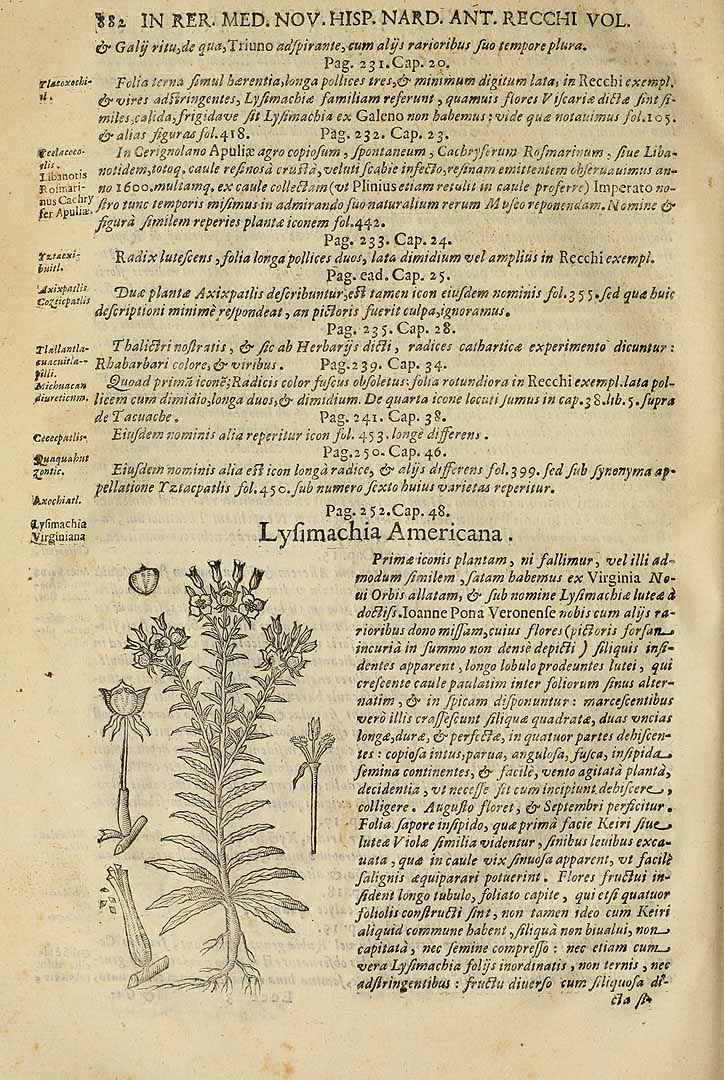 882 IN RER. MED. NOV. HISP. NARD. ANT. RECCHI VOL.
& Galij ritu, de qua, Triuno adspirante, cum alijs rarioribus suo tempore plura.
Pag. 231. Cap. 20.
Tlacoxochi-
tl.
Folia terna simul hærentia, longa pollices tres, & minimum digitum lata, in Recchi exempl.
& vires adstringentes, Lysimachiæ familiam referunt, quamuis flores Viscariæ dictæ sint si-
miles, calida, frigidave sit Lysimachia ex Galeno non habemus: vide quæ notauimus fol. 105.
& alias figuras fol. 418. Pag. 232. Cap. 23.
Libanotis
Rosmari-
nus Cachry
fer Apuliæ.
In Cerignolano Apuliæ agro copiosum, spontaneum, Cachryferum Rosmarinum, siue Liba-
notidem, totoq. caule resinosa crusta, veluti scabie infecto, resinam emittentem obseruauimus an-
no 1600. multamq. ex caule collectam (vt Plinius etiam retulit in caule proferre) Imperato no-
stro tunc temporis misimus in admirando suo naturalium rerum Museo reponendam. Nomine &
figura similem reperies plantæ iconem fol. 442.
Pag. 233. Cap. 24.
Yztacxi-
huitl.
Radix lutescens, folia longa pollices duos, lata dimidium vel amplius in Recchi exempl.
Pag. ead. Cap. 25.
Axixpatlis
Cozticpatlis
Duæ plantæ Axixpatlis describuntur, est tamen icon eiusdem nominis fol. 355. sed quæ huic
descriptioni minimè respondeat, an pictoris fuerit culpa, ignoramus.
Pag. 235. Cap. 28.
Tlallantla-
cuacuitla-
pilli.
Thalictri nostratis, & sic ab Herbarijs dicti, radices catharticæ experimento dicuntur:
Rhabarbari colore, & viribus. Pag. 239. Cap. 34.
Michuacan
diureticum.
Quoad primā iconē; Radicis color fuscus obsoletus: folia rotundiora in Recchi exempl. lata pol-
licem cum dimidio, longa duos, & dimidium. De quarta icone locuti sumus in cap. 38. lib. 5. supra
de Tacuache. Pag. 241. Cap. 38.
Cececpatlis.
Eiusdem nominis alia reperitur icon fol. 453. longè differens.
Pag. 250. Cap. 46.
Quaquahut
zontic.
Eiusdem nominis alia est icon longa radice, & alijs differens fol. 399. sed sub synonyma ap-
pellatione Yztacpatlis fol. 450. sub numero sexto huius varietas reperitur.
Axochiatl.
Pag. 252. Cap. 48.
Lysimachia
Virginiana
Lysimachia Americana.
Primæ iconis plantam, ni fallimur, vel illi ad-
modum similem, satam habemus ex Virginia No-
ui Orbis allatam, & sub nomine Lysimachiæ luteæ à
doctiss. Ioanne Pona Veronense nobis cum alijs ra-
rioribus dono missam, cuius flores (pictoris forsan
incuria in summo non densè depicti) siliquis insi-
dentes apparent, longo lobulo prodeuntes lutei, qui
crescente caule paulatim inter foliorum sinus alter-
natim, & in spicam disponuntur: marcescentibus
verò illis crassescunt siliquæ quadratæ, duas vncias
longæ, duræ, & perfectæ, in quatuor partes dehiscen-
tes: copiosa intus, parua, angulosa, fusca, insipida
semina continentes, & facilè, vento agitata planta,
decidentia, vt necesse sit cum incipiunt dehiscere,
colligere. Augusto floret, & Septembri perficitur.
Folia sapore insipido, quæ prima facie Keiri siue
luteæ Violæ similia videntur, sinibus leuibus exca-
uata, quæ in caule vix sinuosa apparent, vt facilè
salignis æquiparari potuerint. Flores fructui in-
sident longo tubulo, foliato capite, qui etsi quatuor
foliolis constructi sint, non tamen ideo cum Keiri
aliquid commune habent, siliqua non biualui, non
capitata, nec semine compresso: nec etiam cum
vera Lysimachia folijs inordinatis, non ternis, nec
adstringentibus: fructu diuerso cum siliquosa di-
cta si-